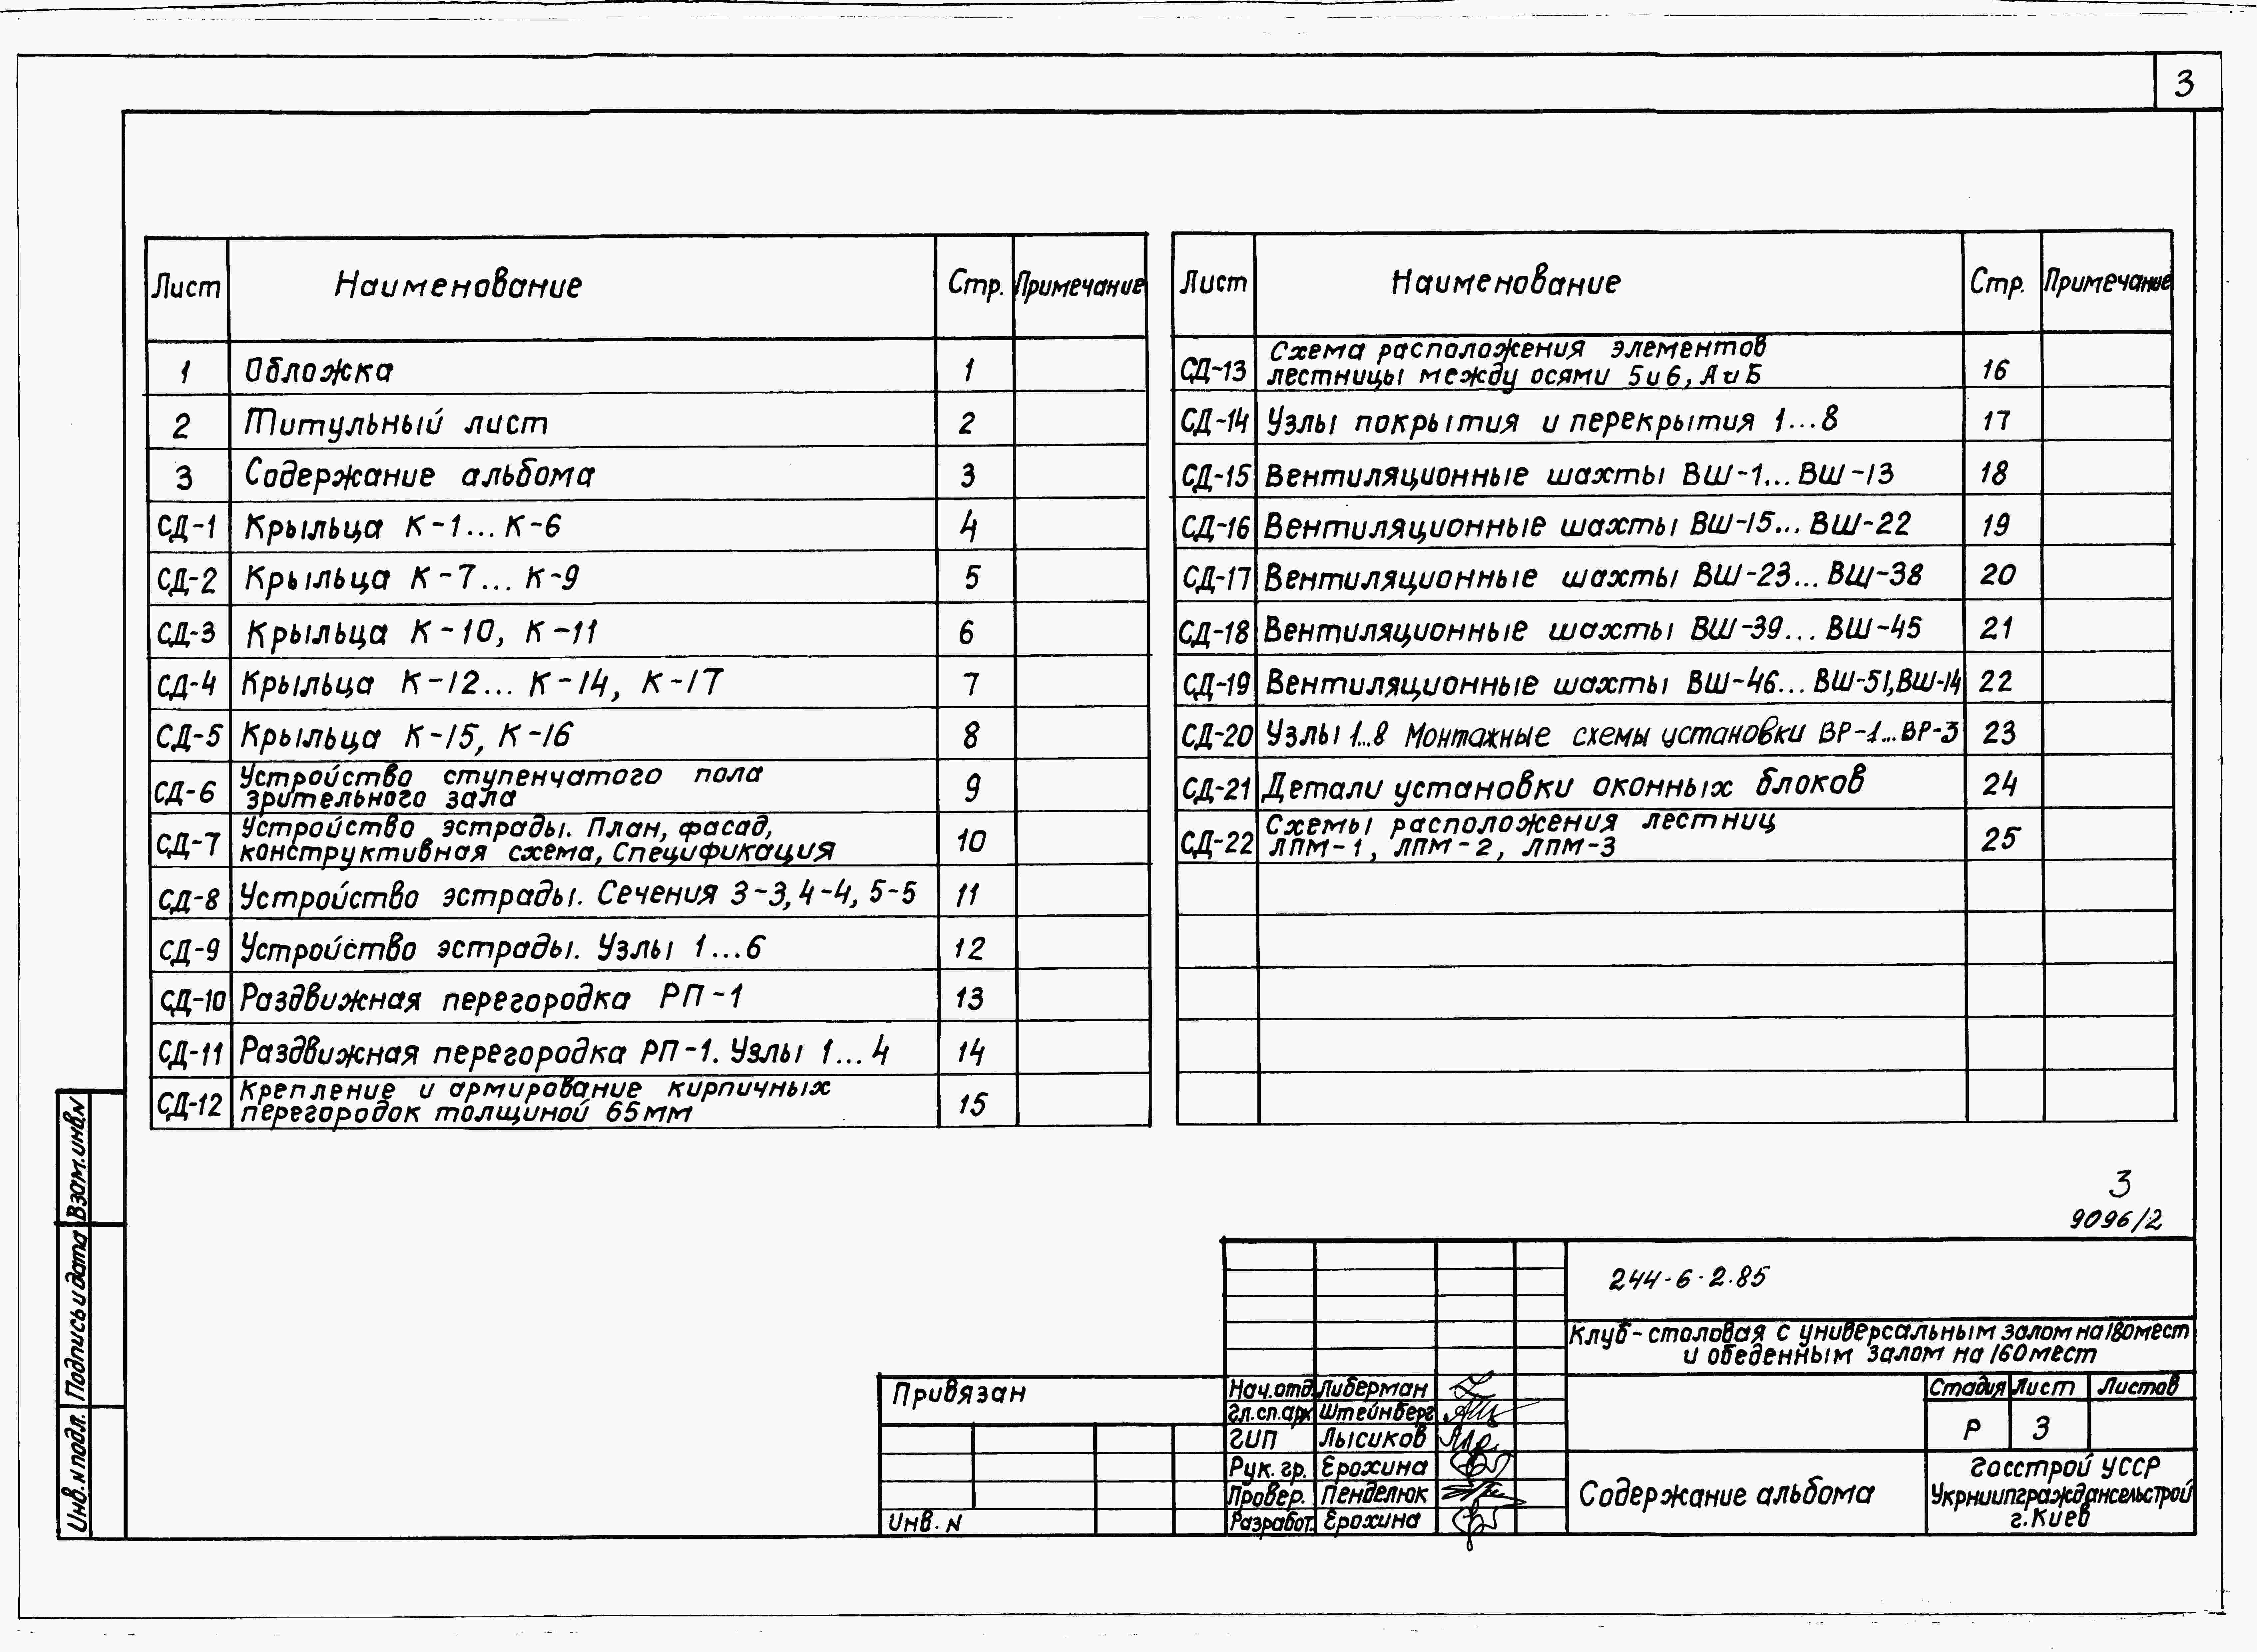 3
Лист Наименование Стр. Примечание
1 Обложка 1
2 Титульный лист 2
3 Содержание альбома 3
СД-1 Крыльца К-1...К-6 4
СД-2 Крыльца К-7...К-9 5
СД-3 Крыльца К-10, К-11 6
СД-4 Крыльца К-12...К-14, К-17 7
СД-5 Крыльца К-15, К-16 8
СД-6 Устройство ступенчатого пола
зрительного зала 9
СД-7 Устройство эстрады. План, фасад,
конструктивная схема, Спецификация 10
СД-8 Устройство эстрады. Сечения 3-3, 4-4, 5-5 11
СД-9 Устройство эстрады. Узлы 1...6 12
СД-10 Раздвижная перегородка РП-1 13
СД-11 Раздвижная перегородка РП-1. Узлы 1...4 14
СД-12 Крепление и армирование кирпичных
перегородок толщиной 65мм 15
Лист Наименование Стр. Примечание
СД-13 Схема расположения элементов
лестницы между осями 5 и 6, А и Б 16
СД-14 Узлы покрытия и перекрытия 1...8 17
СД-15 Вентиляционные шахты ВШ-1...ВШ-13 18
СД-16 Вентиляционные шахты ВШ-15...ВШ-22 19
СД-17 Вентиляционные шахты ВШ-23...ВЩ-38 20
СД-18 Вентиляционные шахты ВШ-39...ВШ-45 21
СД-19 Вентиляционные шахты ВШ-46...ВШ-51, ВШ-14 22
СД-20 Узлы 1...8 Монтажные схемы установки ВР-1...ВР-3 23
СД-21 Детали установки оконных блоков 24
СД-22 Схемы расположения лестниц
ЛПМ-1, ЛПМ-2, ЛПМ-3 25
3
9096/2
244-6-2.85
Клуб-столовая с универсальным залом на 180 мест
и обеденным залом на 160 мест
Стадия Лист Листов
Р 3
Содержание альбома
Госстрой УССР
Укрниипграждансельстрой
г. Киев
Нач.отд. Либерман
Гл.сп.арх Штейнберг
ГИП Лысиков
Рук. гр. Ерохина
Провер. Пенделюк
Разработ. Ерохина
Привязан
Инв. N
Взам.инв.N
Подпись и дата
Инв. N подл.